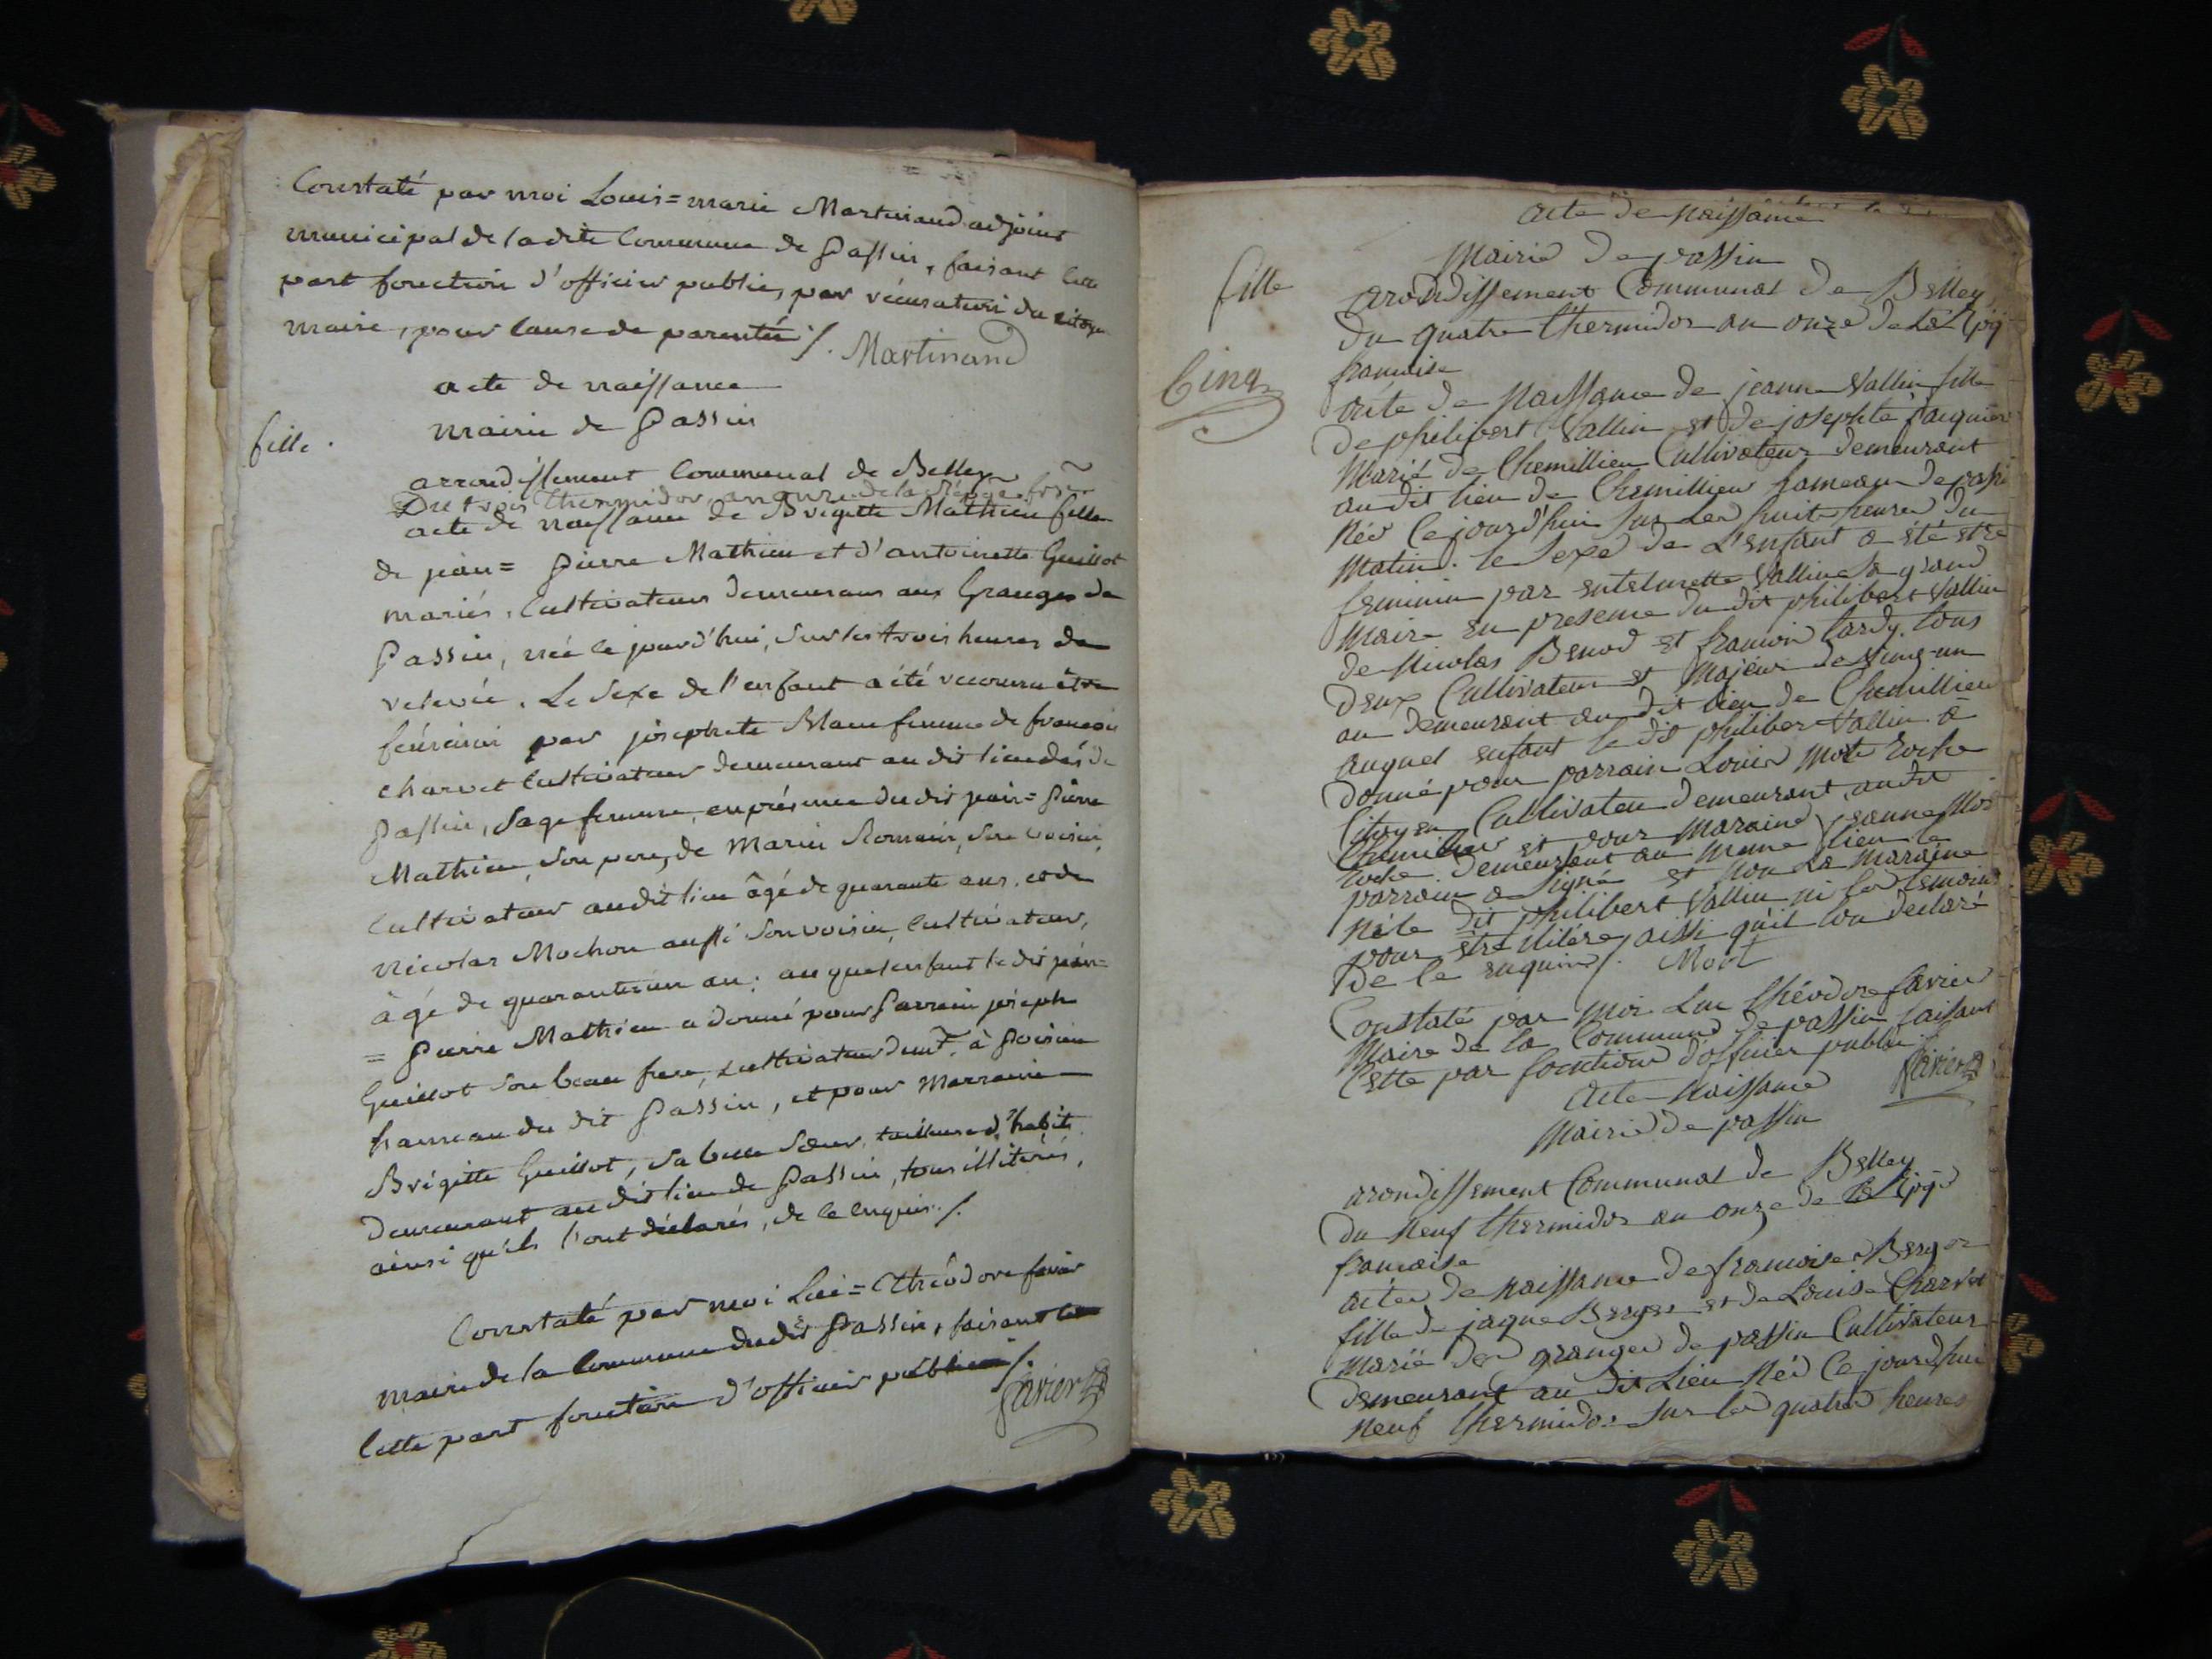 Constaté par moi Louis=marie Martinand adjoint
municipal de ladite Commune de Passin, faisant cette
part fonction d'officier public, par récusation du citoyen
maire, pour cause de parenté /. Martinand
acte de naissance
mairie de Passin
fille.
arrondissement Communal de Belley
Du trois Thermidor, an onze de la Répque frse
acte de naissance de Brigitte Mathieu fille
de jean= Pierre Mathieu et d'antoinette Guillot
mariés, Cultivateurs demeurans aux Granges de
Passin, née le jourd'hui, sur les trois heures de
relevée. Le Sexe de l'enfant a été reconnu être
féminin par josephete femme de francois
charvet Cultivateur demeurant au dit lieu de
Passin, Sage femme, en présence du dit jean= Pierre
Mathieu, son pere, de Marin Romain, son voisin,
Cultivateur audit lieu âgé de quarante ans, et de
Nicolas Mochon aussi Son voisin, Cultivateur,
âgé de quarante un an; au quel enfant le dit jean=
= Pierre Mathieu a donné pour Parrain joseph
Guillot Son beau frere, Cultivateur demt. à Poisieu
hameau du dit Passin, et pour Marraine
Brigitte Guillot, Sa belle Sœur, tailleuse d'habits
demeurant au dit lieu de Passin, tous illitérés,
ainsi qu'ils l'ont déclarés, de ce enquis /.
Constaté par moi Luc=Théodore favier
maire de la Commune dudit Passin, faisant
Cette part fonction d'officier public /.
favier
acte de Naissance
Mairie de passin
fille
arondissement Communal de Belley
du quatre thermidor an onze de la Rpq
francaise
Cinq
acte de Naissance de jeanne Vallin fille
de philibert Vallin et de josephte
Marié de Chemillieu Cultivateurs demeurant
au dit lieu de Chemillieu hameau de passin
Née Cejourd'hui sur les huit heures du
Matin. le sexe de L'enfant a été etre
feminin par Vallin Sa grand
Maire en presence du dit philibert Vallin
de Nicolas Benod et francois tardy tous
deux Cultivateur et Majeur de vingt-un
an demeurant au dit lieu de Chemillieu
auquel enfant le dit philiber Vallin a
donné pour parrain Louis Mote roche
Citoyen Cultivateur demeurant audit
Chemillieu et pour Maraine jeanne Mot
roche demeurant au meme lieu le
parrain a Signé et non La maraine
Ni le dit philibert Vallin ni les temoins
pour etre ilitéré, aisi qu'il lon declaré
de ce enquis /. Mot
Constaté par Moi Luc théodore favier
Maire de la Commune de passin faisant
Cette par fonction d'officier public
favier
acte Naissance
Mairie de passin
arondissement Communal de Belley
du Neuf thermidor an onze de la Rpq
francaise
acte de Naissance de francoise Berger
fille de jaque Berger et de Louise Charvet
Marié des granges de passin Cultivateur
demeurant au dit Lieu Née Ce jourd'hui
Neuf thermidor Sur les quatre heures